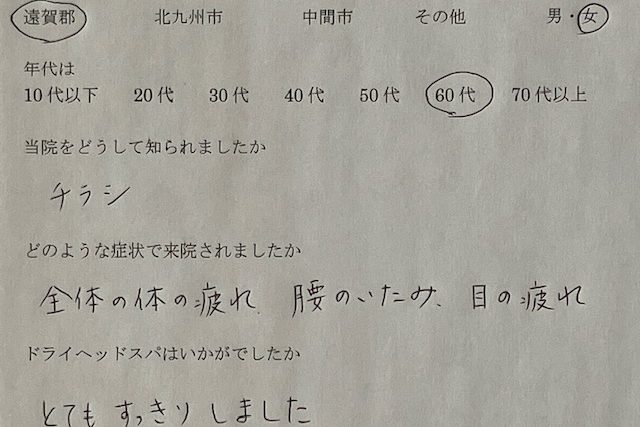 遠賀郡 北九州市 中間市 その他 男・女
年代は
10代以下 20代 30代 40代 50代 60代 70代以上
当院をどうして知られましたか
チラシ
どのような症状で来院されましたか
全体の体の疲れ、腰のいたみ、目の疲れ
ドライヘッドスパはいかがでしたか
とてもすっきりしました